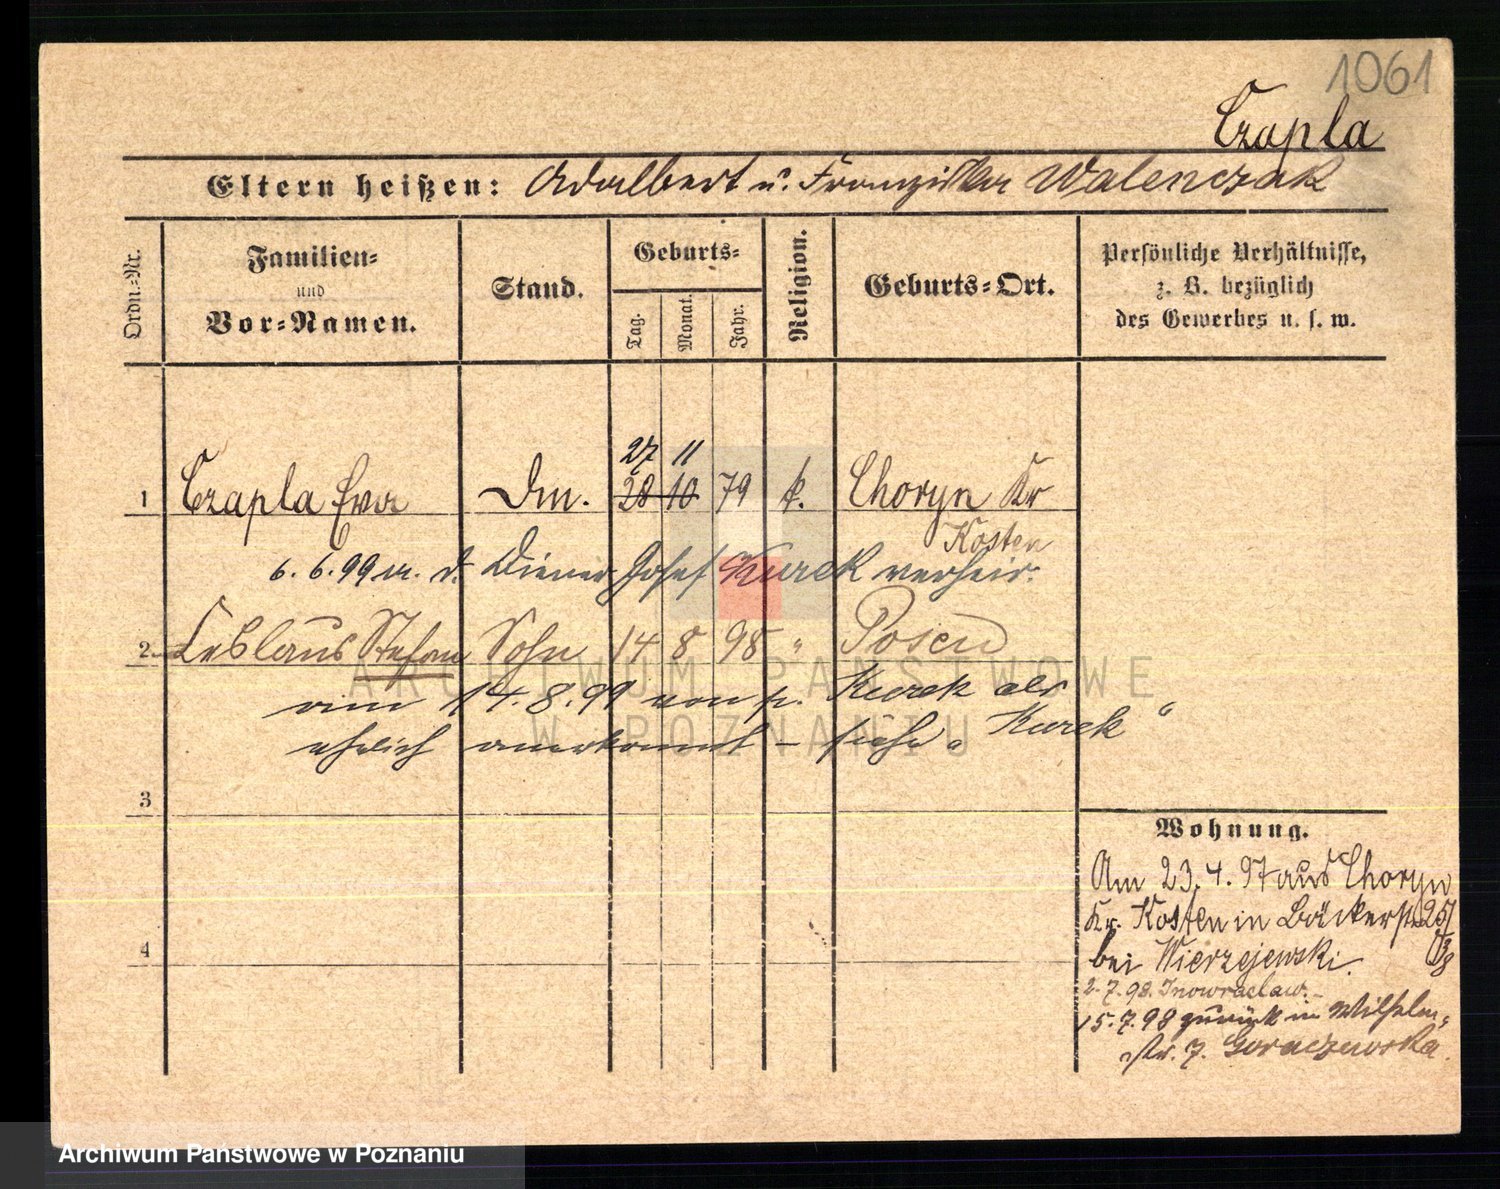 1061
Czapla
Eltern heißen: Adalbert u. Franziska Walenczak
Ordn.-Nr.
Familien-
und
Vor-Namen.
Stand.
Geburts-
Tag.
Monat.
Jahr.
Religion.
Geburts-Ort.
Persönliche Verhältnisse,
z. B. bezüglich
des Gewerbes u. s. w.
27 11
1 Czapla Eva Dm. 28 10 79 k. Choryn Kr
Kosten
6. 6. 99 m. d. Diener Josef Kurek verheir.
2. Ceslaus Stefan Sohn 14 8 98 " Posen
am 14. 8. 99 von p. Kurek als
ehelich anerkannt – siehe „Kurek“
3
4
Wohnung.
Am 23. 4. 97 aus Choryn
Kr. Kosten in Bäckerstr 25/
bei Wierzejewski.
2. 7. 98. Inowraclaw. –
15. 7. 98 zurück in Wilhelm-
str. 7. Goraczewska.
ARCHIWUM PAŃSTWOWE
W POZNANIU
Archiwum Państwowe w Poznaniu